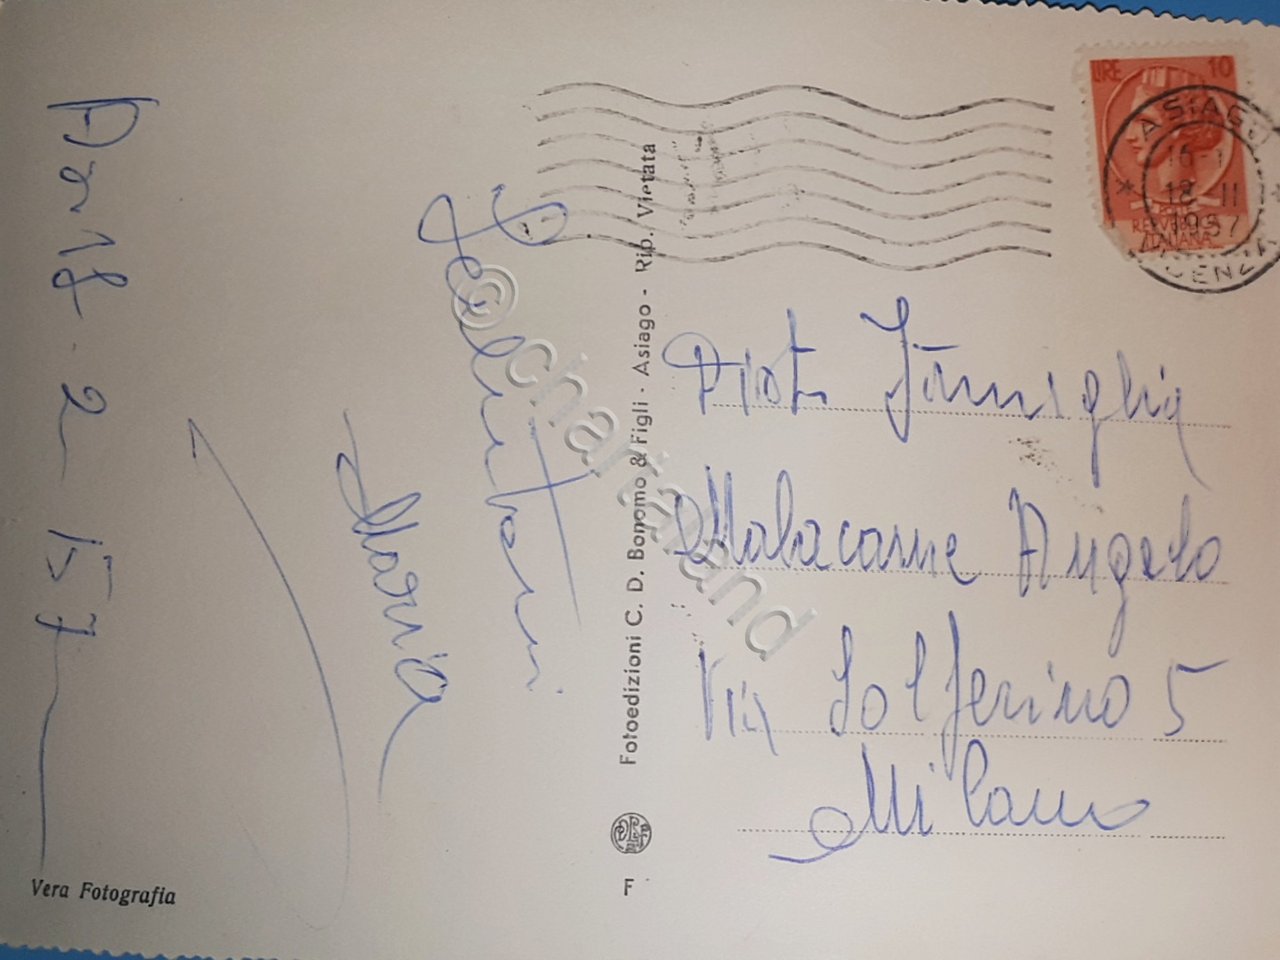 As 18-2-57
Salutoni
Maria
Vera Fotografia
Fotoedizioni C. D. Bonomo & Figli - Asiago - Rip. Vietata
F
LIRE 10
REPUBBLICA
ITALIANA
ASIAGO
18 II
1957
VICENZA
Famiglia
Malacarne Angelo
Via Solferino 5
Milano
© chartaland